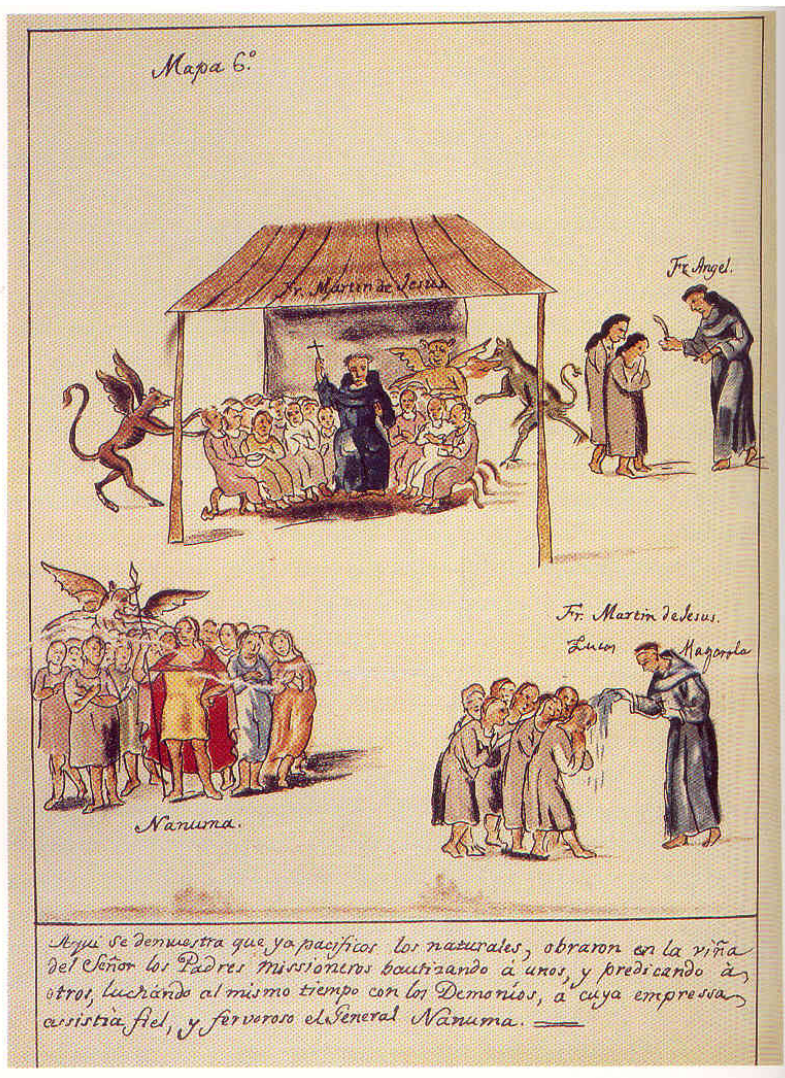 Mapa 6.º
Fr. Martin de Jesus
Fr. Angel.
Fr. Martin de Jesus.
Lucas Magorola
Nanuma.
Aqui se demuestra que ya pacificos los naturales, obraron en la viña
del Señor los Padres missioneros bautizando à unos, y predicando à
otros, luchando al mismo tiempo con los Demonios, à cuya empressa
assistia fiel, y fervoroso el General Nanuma.